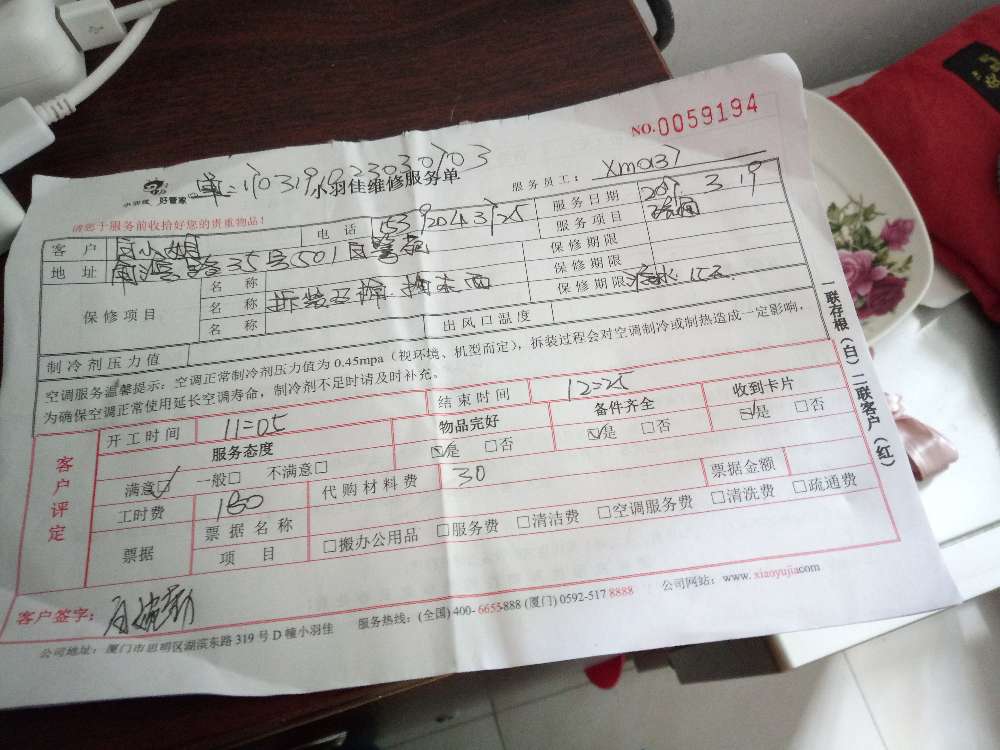 NO.0059194
单:170319102303070703
小羽佳 好管家
小羽佳维修服务单
服务员工: Xm0137
请您于服务前收拾好您的贵重物品!
客户 白小姐 电话 服务日期 3.19
地址 35号501 服务项目 疏通
保修项目 名称 保修期限
名称 保修期限
名称 保修期限
制冷剂压力值 出风口温度
空调服务温馨提示:空调正常制冷剂压力值为 0.45mpa(视环境、机型而定),拆装过程会对空调制冷或制热造成一定影响,
为确保空调正常使用延长空调寿命,制冷剂不足时请及时补充。
客户评定
开工时间 11=05 结束时间 12=25
服务态度 物品完好 备件齐全 收到卡片
满意☑ 一般□ 不满意□ ☑是 □否 ☑是 □否 ☑是 □否
工时费 180 代购材料费 30 票据金额
票据 票据名称
项目 □搬办公用品 □服务费 □清洁费 □空调服务费 □清洗费 □疏通费
客户签字:
服务热线:(全国)400-6655888 (厦门)0592-517 8888 公司网站:www.xiaoyujia.com
公司地址:厦门市思明区湖滨东路 319 号 D 幢小羽佳
一联存根(白)二联客户(红)